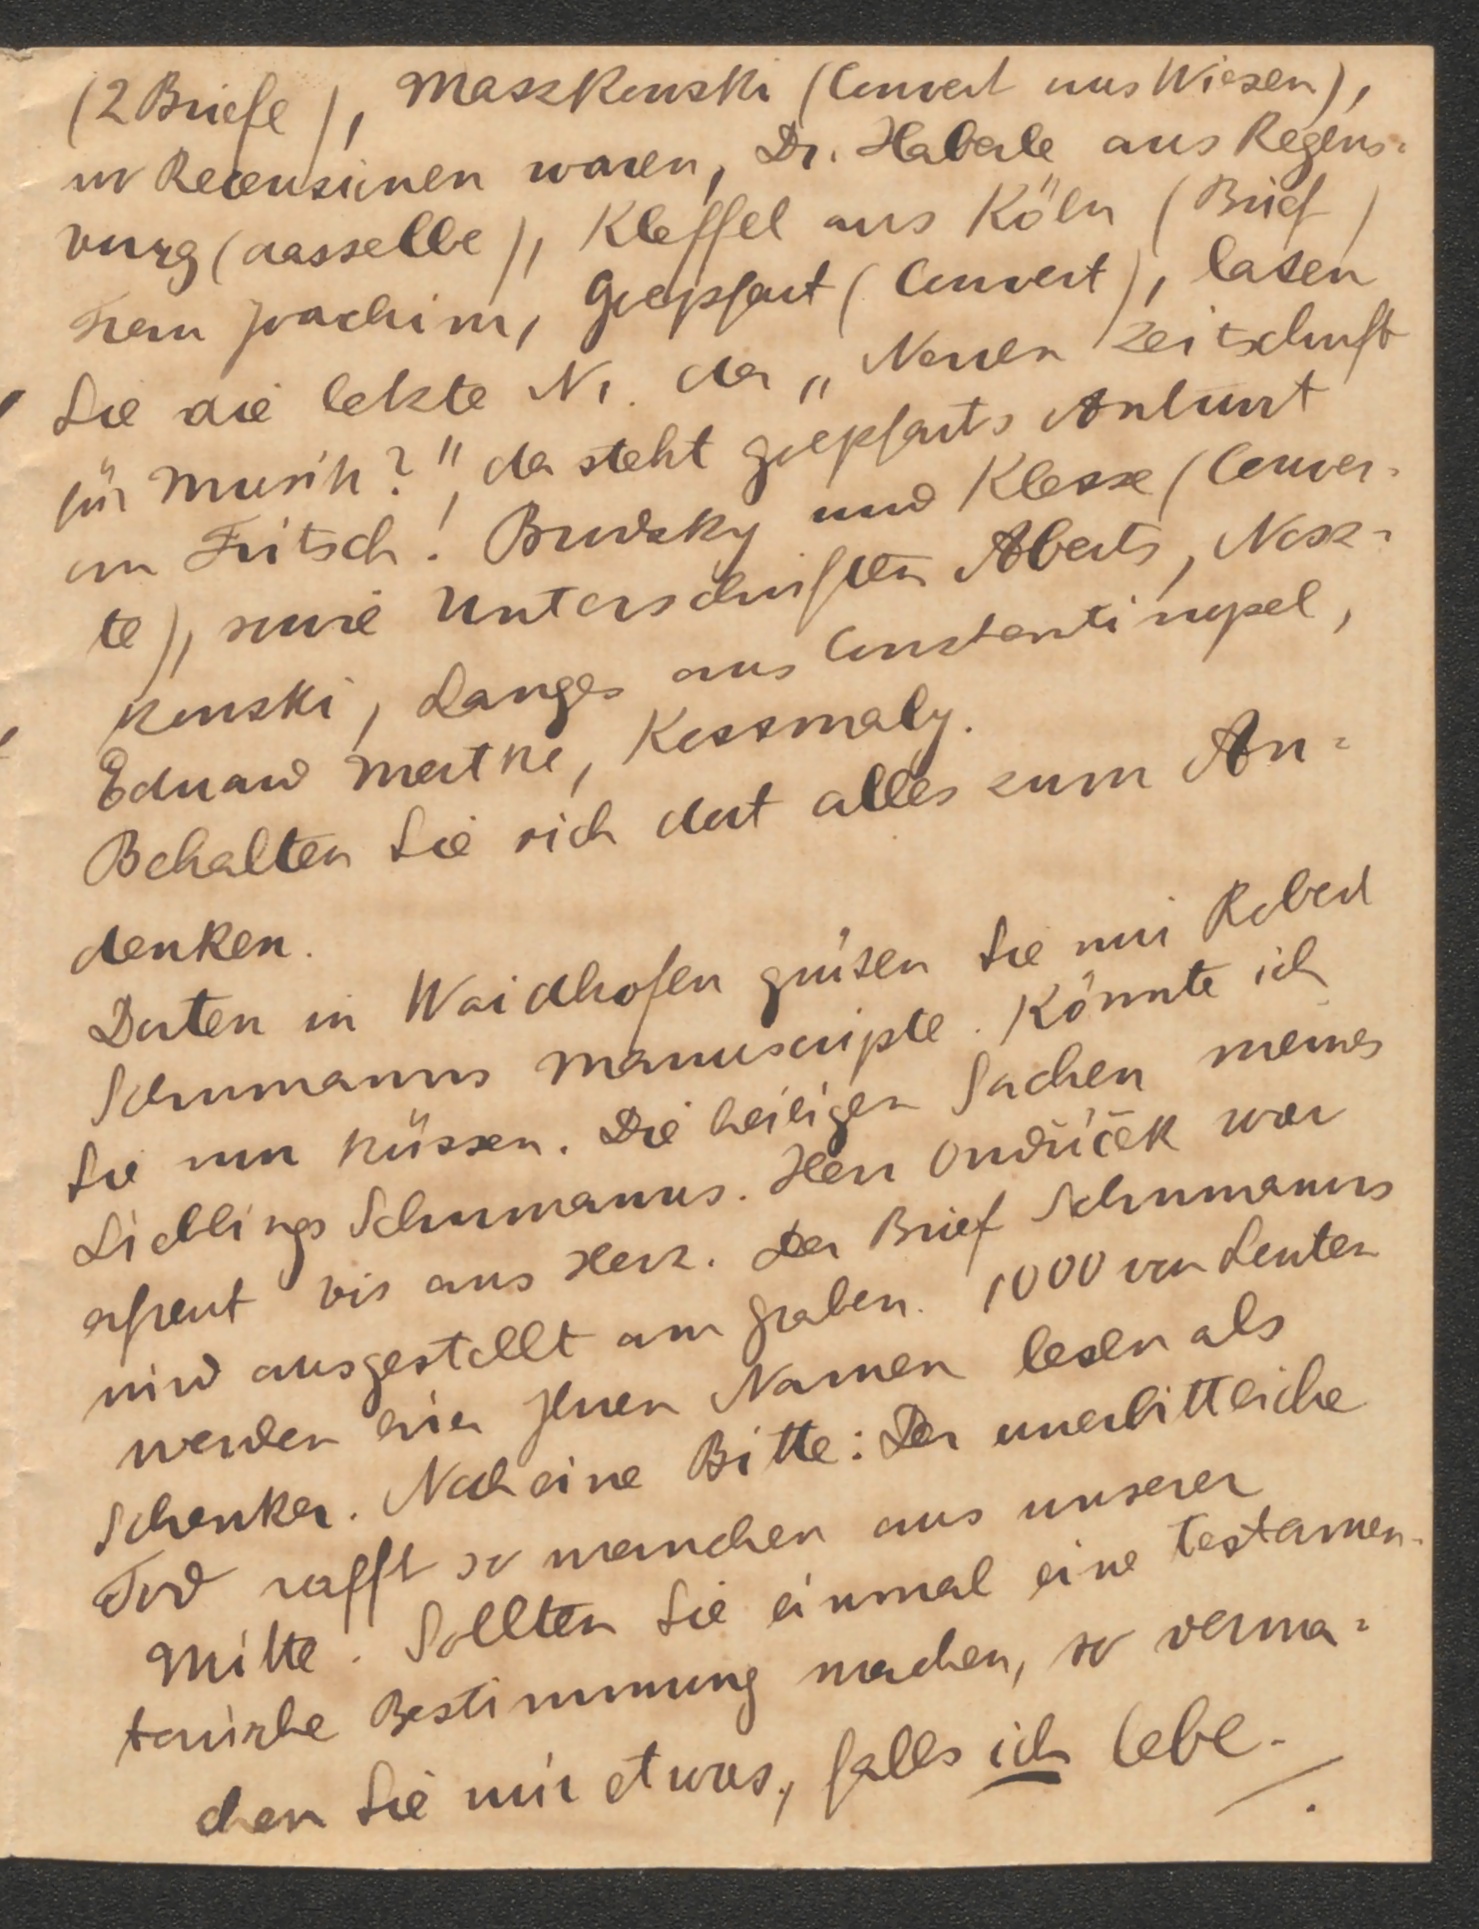 (2 Briefe), Maszkowski (Couvert aus Wiesen),
wo Recensionen waren, Dr. Haberle aus Regens-
burg (dasselbe), Kleffel aus Köln (Brief)
Frau Joachim, Goepfart (Couvert), lasen
Sie die letzte Nr. der „Neuen Zeitschrift
für Musik?", da steht Goepfarts Antwort
an Fritsch! Brodsky und Klesse (Couver-
te), sowie Unterschriften Aberts, Nosz-
kowski, Langes aus Constantinopel,
Eduard Mertke, Kossmaly.
Behalten Sie sich dort alles zum An-
denken.
Dorten in Waidhofen grüsen Sie mir Robert
Schumanns Manuscripte. Könnte ich
Sie nun küssen. Die heiligen Sachen meines
Lieblings Schumanns. Herr Ondříček war
erfreut bis ans Herz. Der Brief Schumanns
wird ausgestellt am Graben. 1000 von Leuten
werden hier Jhren Namen lesen als
Schenker. Noch eine Bitte: Der unerbittliche
Tod rafft so manchen aus unserer
Mitte. Sollten Sie einmal eine testamen-
tarische Bestimmung machen, so verma-
chen Sie mir etwas, falls ich lebe.